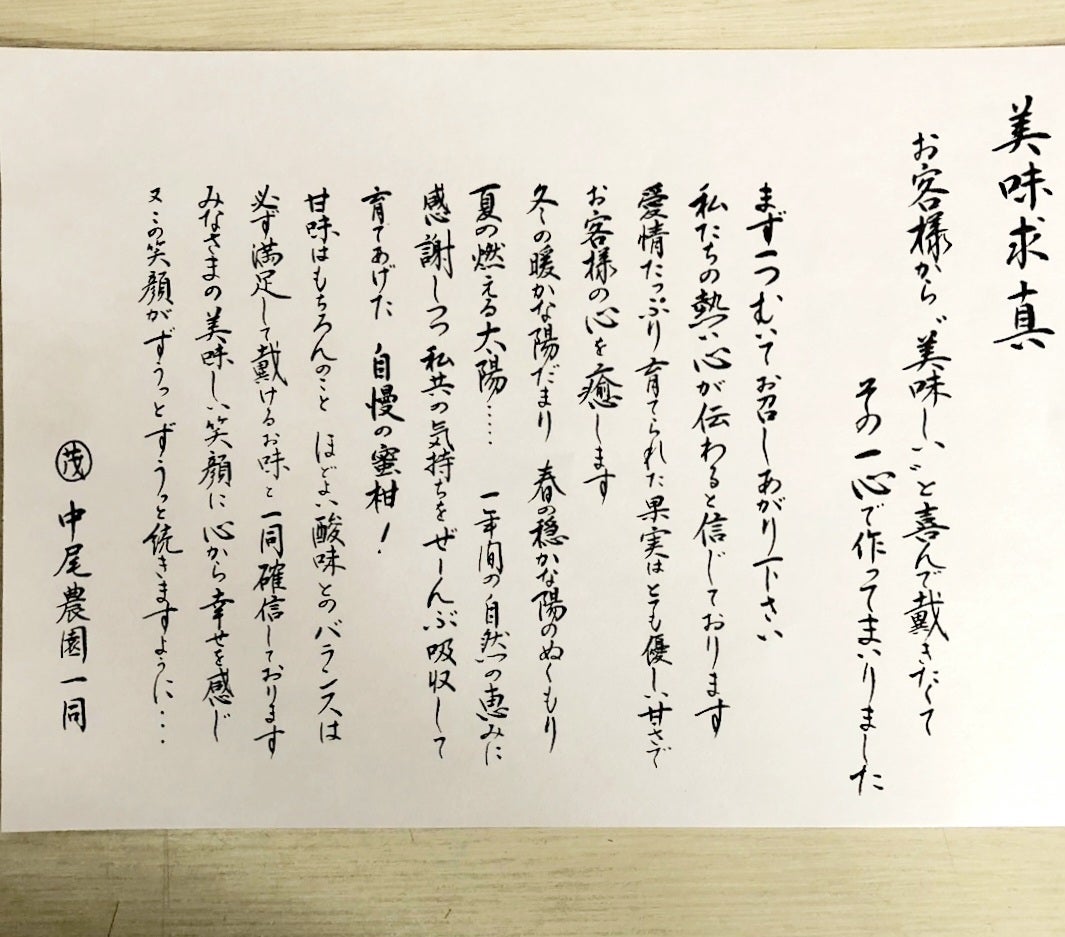 美味求真
お客様から〝美味しい〟と喜んで戴きたくて
その一心で作ってまいりました
まず一つむいてお召しあがり下さい
私たちの熱い心が伝わると信じております
愛情たっぷり育てられた果実はとても優しい甘さで
お客様の心を癒します
冬の暖かな陽だまり 春の穏かな陽のぬくもり
夏の燃える太陽…… 一年間の自然の恵みに
感謝しつつ私共の気持ちをぜーんぶ吸収して
育てあげた 自慢の蜜柑！
甘味はもちろんのこと ほどよい酸味とのバランスは
必ず満足して戴けるお味と一同確信しております
みなさまの美味しい笑顔に心から幸せを感じ
又この笑顔がずうっとずうっと続きますように…
茂 中尾農園一同